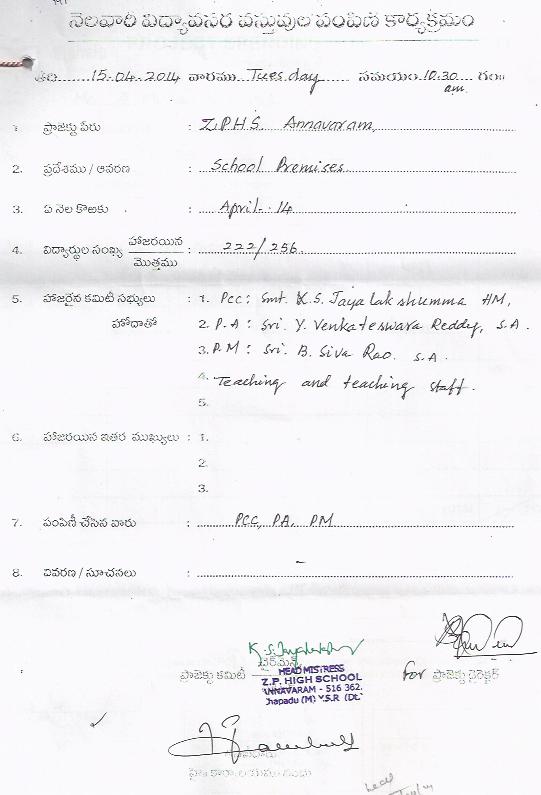 నెలవారి విద్యావసర వస్తువుల పంపిణి కార్యక్రమం
తేది 15-04-2014 వారము Tuesday సమయం 10.30 గం॥
am
1. ప్రాజెక్టు పేరు : Z.P.H.S. Annavaram
2. ప్రదేశము / ఆవరణ : School Premises
3. ఏ నెల కొఱకు : April-14
4. విద్యార్థుల సంఖ్య హాజరయిన / మొత్తము : 222/256
5. హాజరైన కమిటీ సభ్యులు : 1. PCC: Smt. K.S. Jaya lakshumma HM,
హోదాతో 2. P.A : Sri. Y. Venkateswara Reddy, S.A.
3. P.M : Sri. B. Siva Rao. S.A
4. Teaching and teaching staff.
5.
6. హాజరయిన ఇతర ముఖ్యులు : 1.
2.
3.
7. పంపిణీ చేసిన వారు : PCC, PA, PM
8. వివరణ / సూచనలు : -
ప్రాజెక్టు కమిటీ చైర్మన్ for ప్రాజెక్టు డైరెక్టర్
HEAD MISTRESS
Z.P. HIGH SCHOOL
ANNAVARAM - 516 362.
Chapadu (M) Y.S.R (Dt.